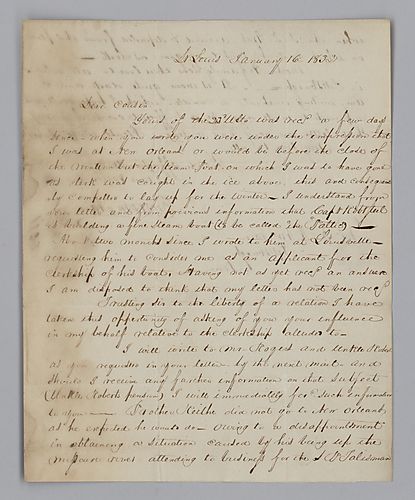 St Louis January 16 1833
Dear Cousin
Yours of the 23d Ulto was recd a few days
since - when you wrote you were under the impression that
I was at New Orleans or would be before the close of
the winter but the Steam Boat on which I was to have gone
as clerk was caught in the ice above this and consequent
ly compelled to lay up for the winter - I understand from
your letter and from previous information that Capt
is building a fine Steam Boat (to be called the
About two months since I wrote to him at Louisville -
requesting him to consider me as an applicant for the
clerkship of his boat. Having not as yet recd an answer
I am disposed to think that my letter has not been recd
Trusting Sir to the liberty of a relation I have
taken this opportunity of asking of you your influence
in my behalf relative to the clerkship alluded to -
I will write to Mr. Rogers and Unkle Robert
as you requested in your letter - by the next mail - and
should I receive any farther information on that subject
(Unkle Roberts pension) I will immediately for such information
to you - Brother did not go to New Orleans
as he expected he would do - owing to a disappointment
in obtaining a situation caused by his being up the
Missouri river attending to business for the S. B. Talisman